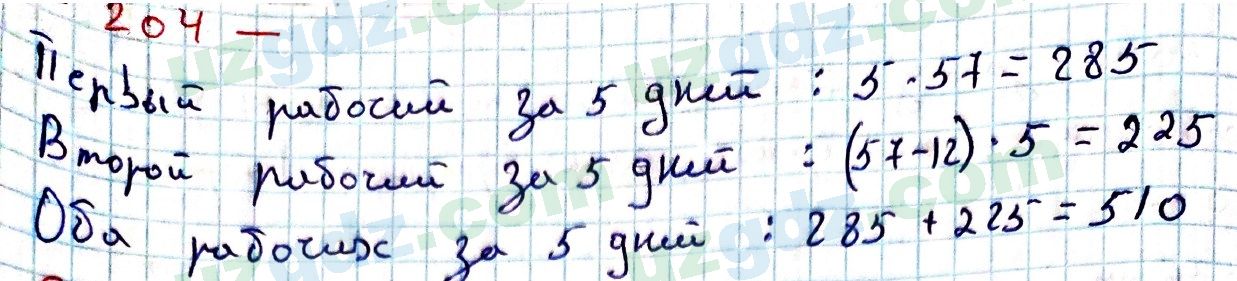 204 —
Первый рабочий за 5 дней : 5 · 57 = 285
Второй рабочий за 5 дней : (57-12) · 5 = 225
Оба рабочих за 5 дней : 285 + 225 = 510
uzgdz.com